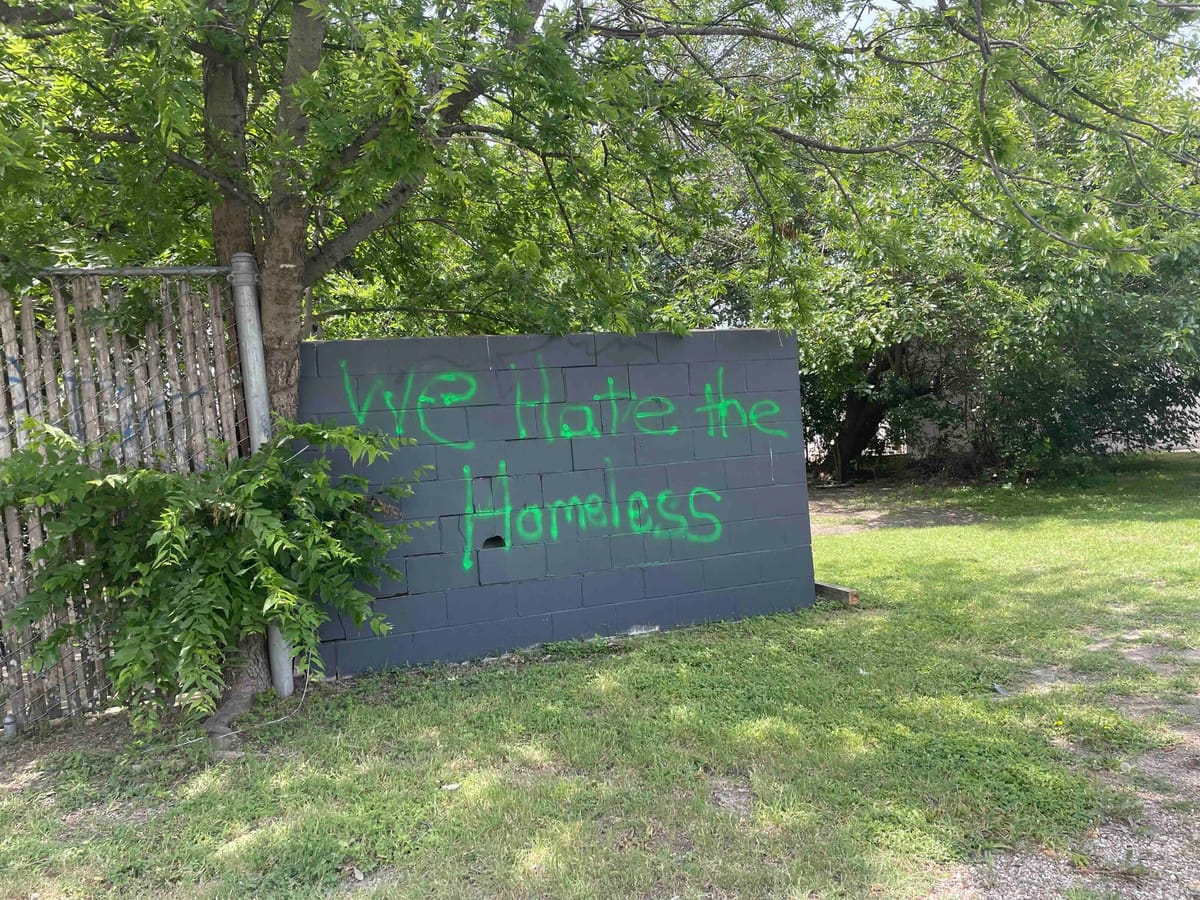 We Hate the
Homeless